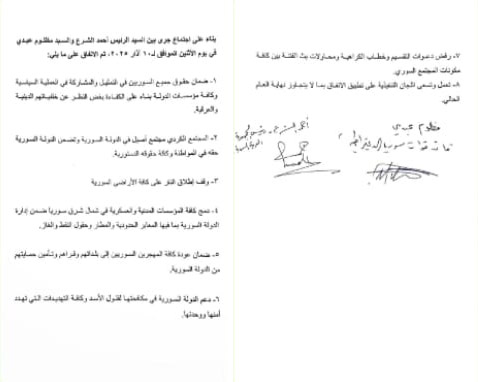 بناء على اجتماع جرى بين السيد الرئيس أحمد الشرع والسيد مظلوم عبدي
في يوم الاثنين الموافق لـ١٠ آذار ٢٠٢٥، تم الاتفاق على ما يلي:
١- ضمان حقوق جميع السوريين في التمثيل والمشاركة في العملية السياسية
وكافة مؤسسات الدولة بناء على الكفاءة بغض النظر عن خلفياتهم الدينية
والعرقية.
٢- المجتمع الكردي مجتمع أصيل في الدولة السورية وتضمن الدولة السورية
حقه في المواطنة وكافة حقوقه الدستورية.
٣- وقف إطلاق النار على كافة الأراضي السورية
٤- دمج كافة المؤسسات المدنية والعسكرية في شمال شرق سوريا ضمن إدارة
الدولة السورية بما فيها المعابر الحدودية والمطار وحقول النفط والغاز.
٥- ضمان عودة كافة المهجرين السوريين إلى بلداتهم وقراهم وتأمين حمايتهم
من الدولة السورية.
٦- دعم الدولة السورية في مكافحتها لفلول الأسد وكافة التهديدات التي تهدد
أمنها ووحدتها.
٧- رفض دعوات التقسيم وخطاب الكراهية ومحاولات بث الفتنة بين كافة
مكونات المجتمع السوري.
٨- تعمل وتسعى اللجان التنفيذية على تطبيق الاتفاق بما لا يتجاوز نهاية العام
الحالي.
مظلوم عبدي